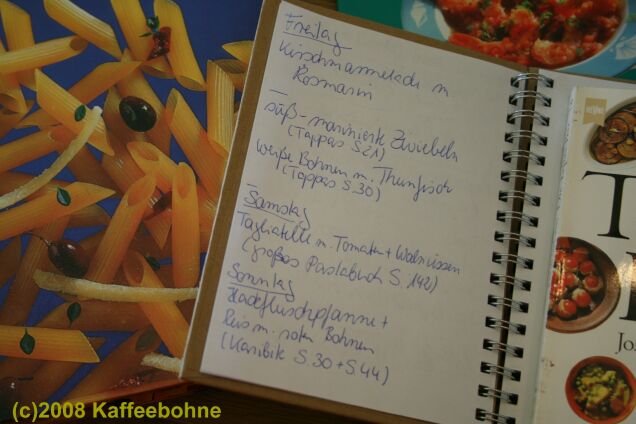 Freitag
Kirschmarmelade m
Rosmarin
süß-marinierte Zwiebeln
(Tappas S.21)
weiße Bohnen m. Thunfisch
(Tappas S.30)
Samstag
Tagliatelle m. Tomaten + Walnüssen
(großes Pastabuch S. 142)
Sonntag
Hackfleischpfanne +
Reis m. roten Bohnen
(Karibik S.30 + S.44)
T
Jo
(c)2008 Kaffeebohne